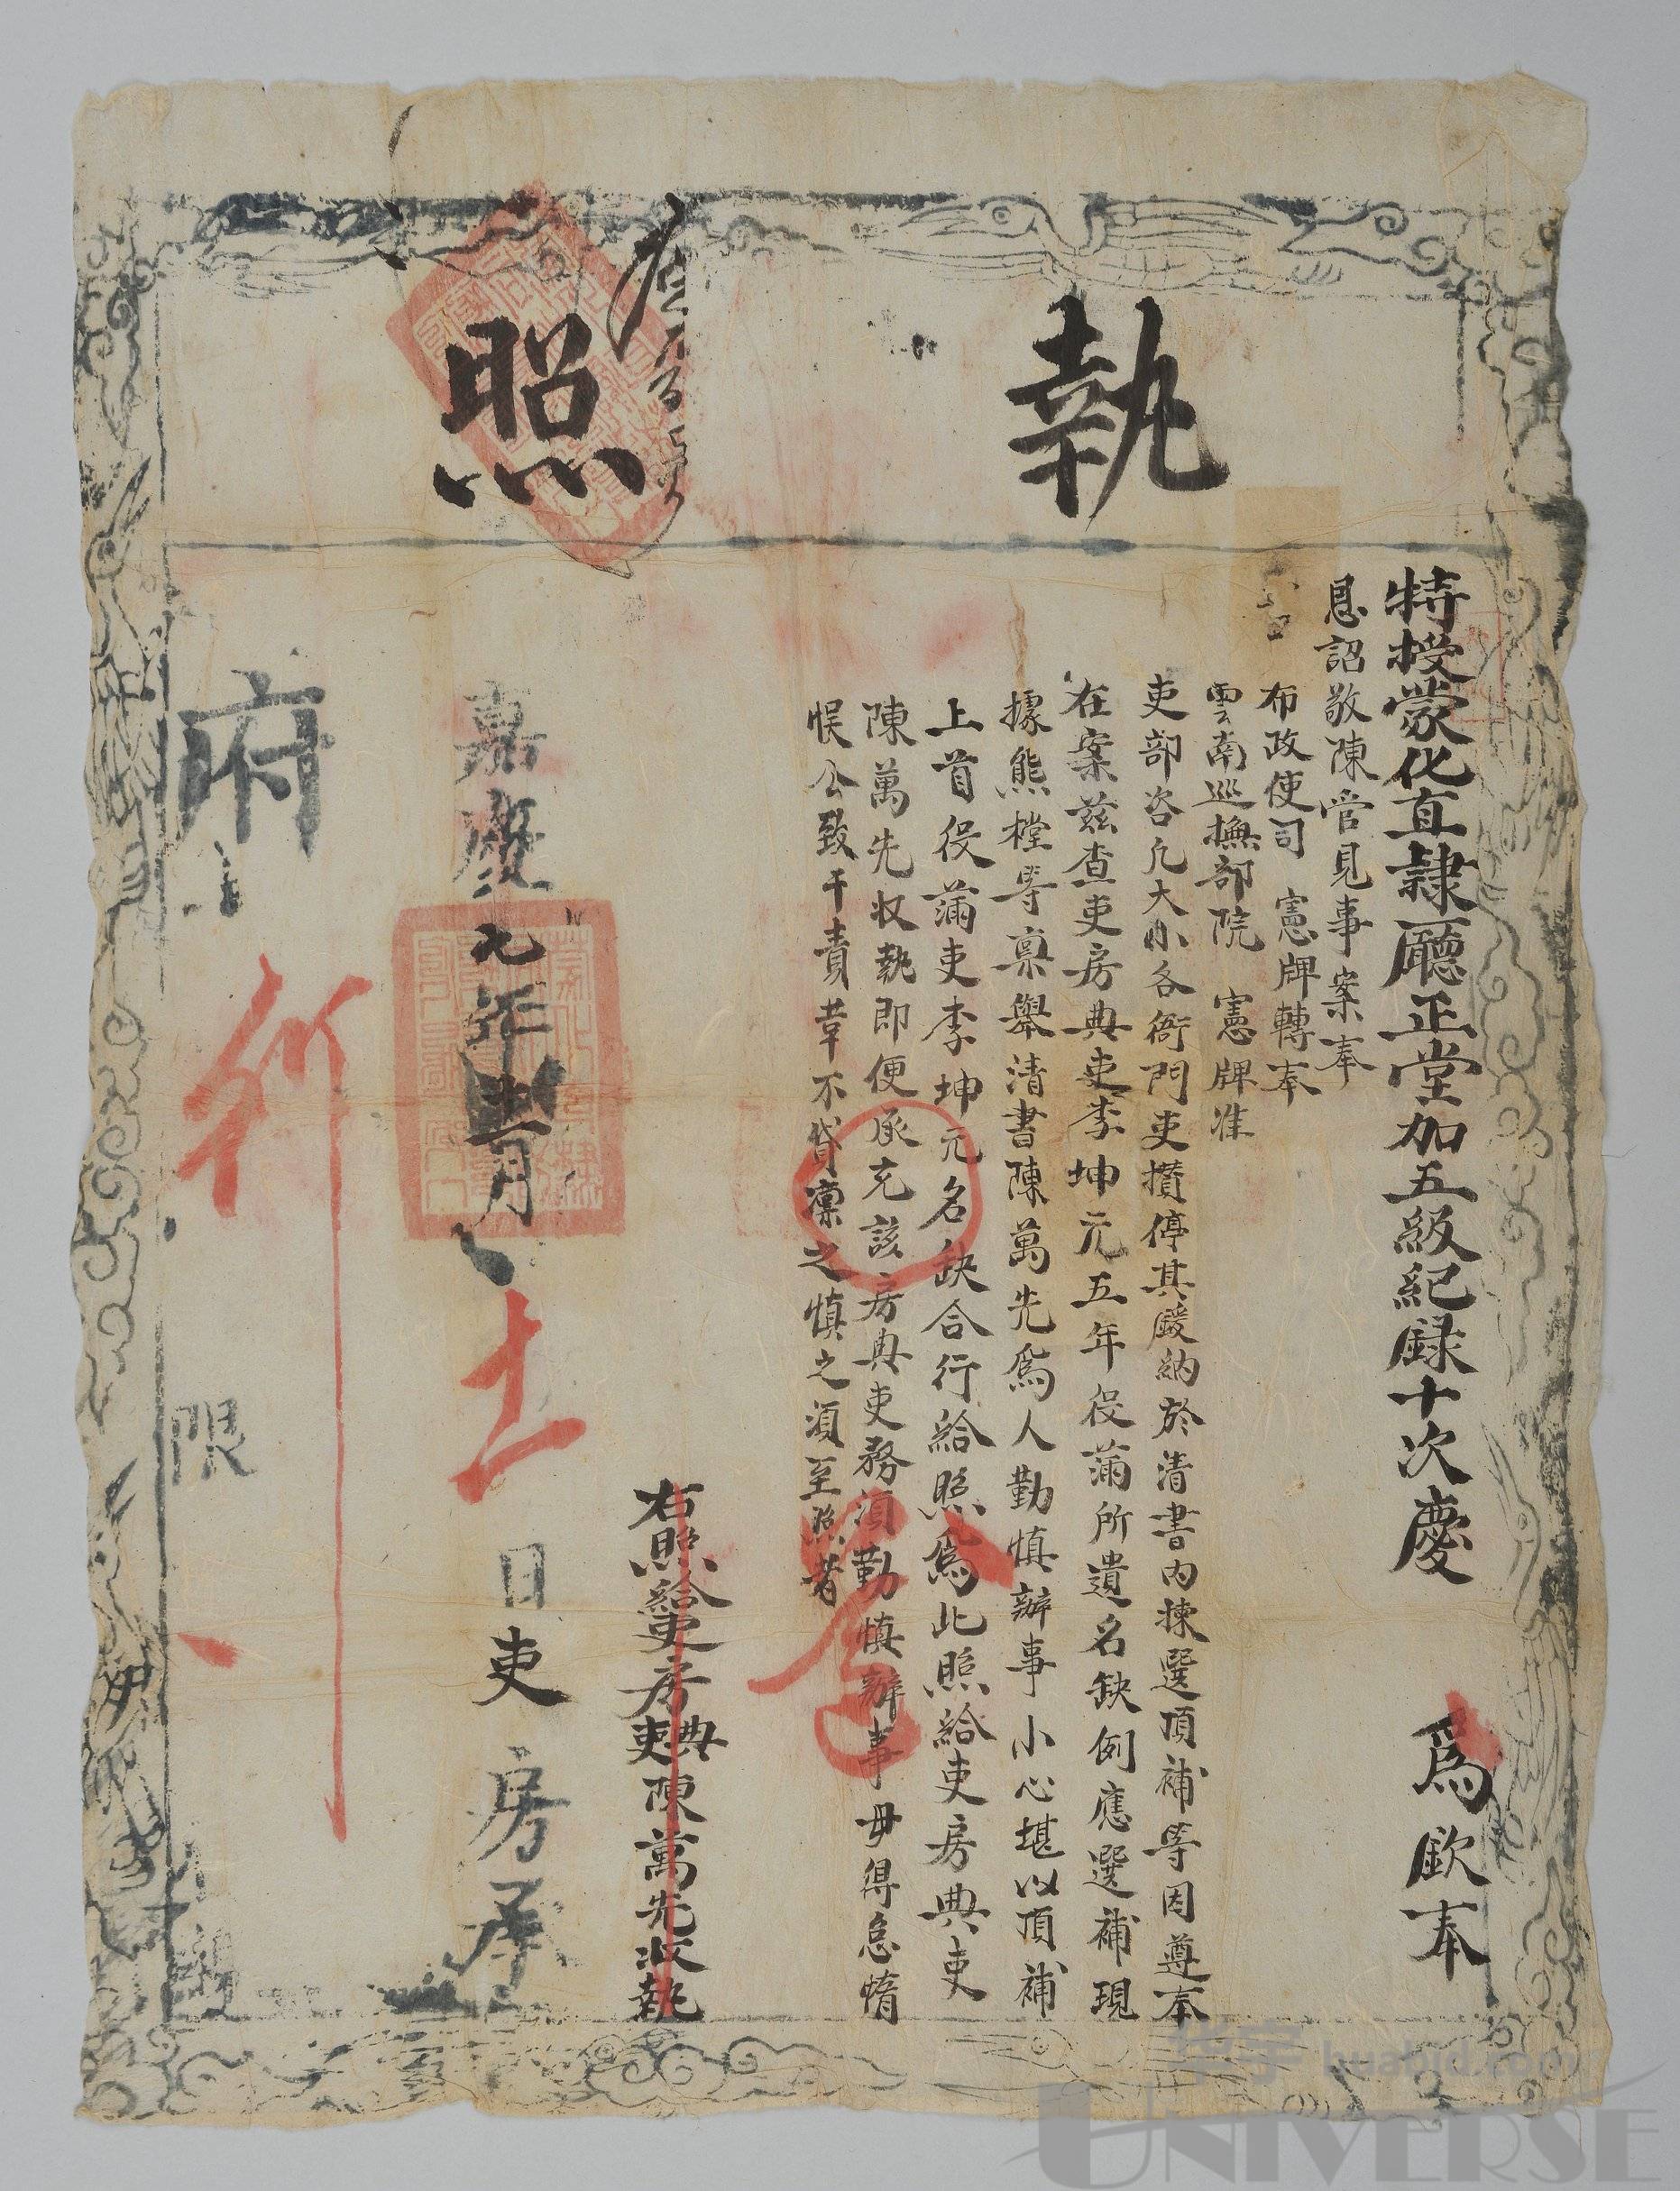 執照
特授蒙化直隸廳正堂加五級紀録十次慶 爲欽奉
恩詔敬陳管見事案奉
布政使司 憲牌轉奉
雲南巡撫部院 憲牌准
吏部咨凡大小各衙門吏攢停其援納於清書内揀選頂補等因遵奉
在案兹查吏房典吏李坤元五年役滿所遺名缺例應選補現
據熊樘等禀舉清書陳萬先爲人勤慎辦事小心堪以頂補
上首役滿吏李坤元名缺合行給照爲此照給吏房典吏
陳萬先收執即便承充該房典吏務須勤慎辦事毋得怠惰
悮公致干責革不貸凛之慎之須至照者
右照給吏房典吏陳萬先收執
嘉慶 年 月 十一 日吏房承
府 行
限
華宇 huabid.com
UNIVERSE